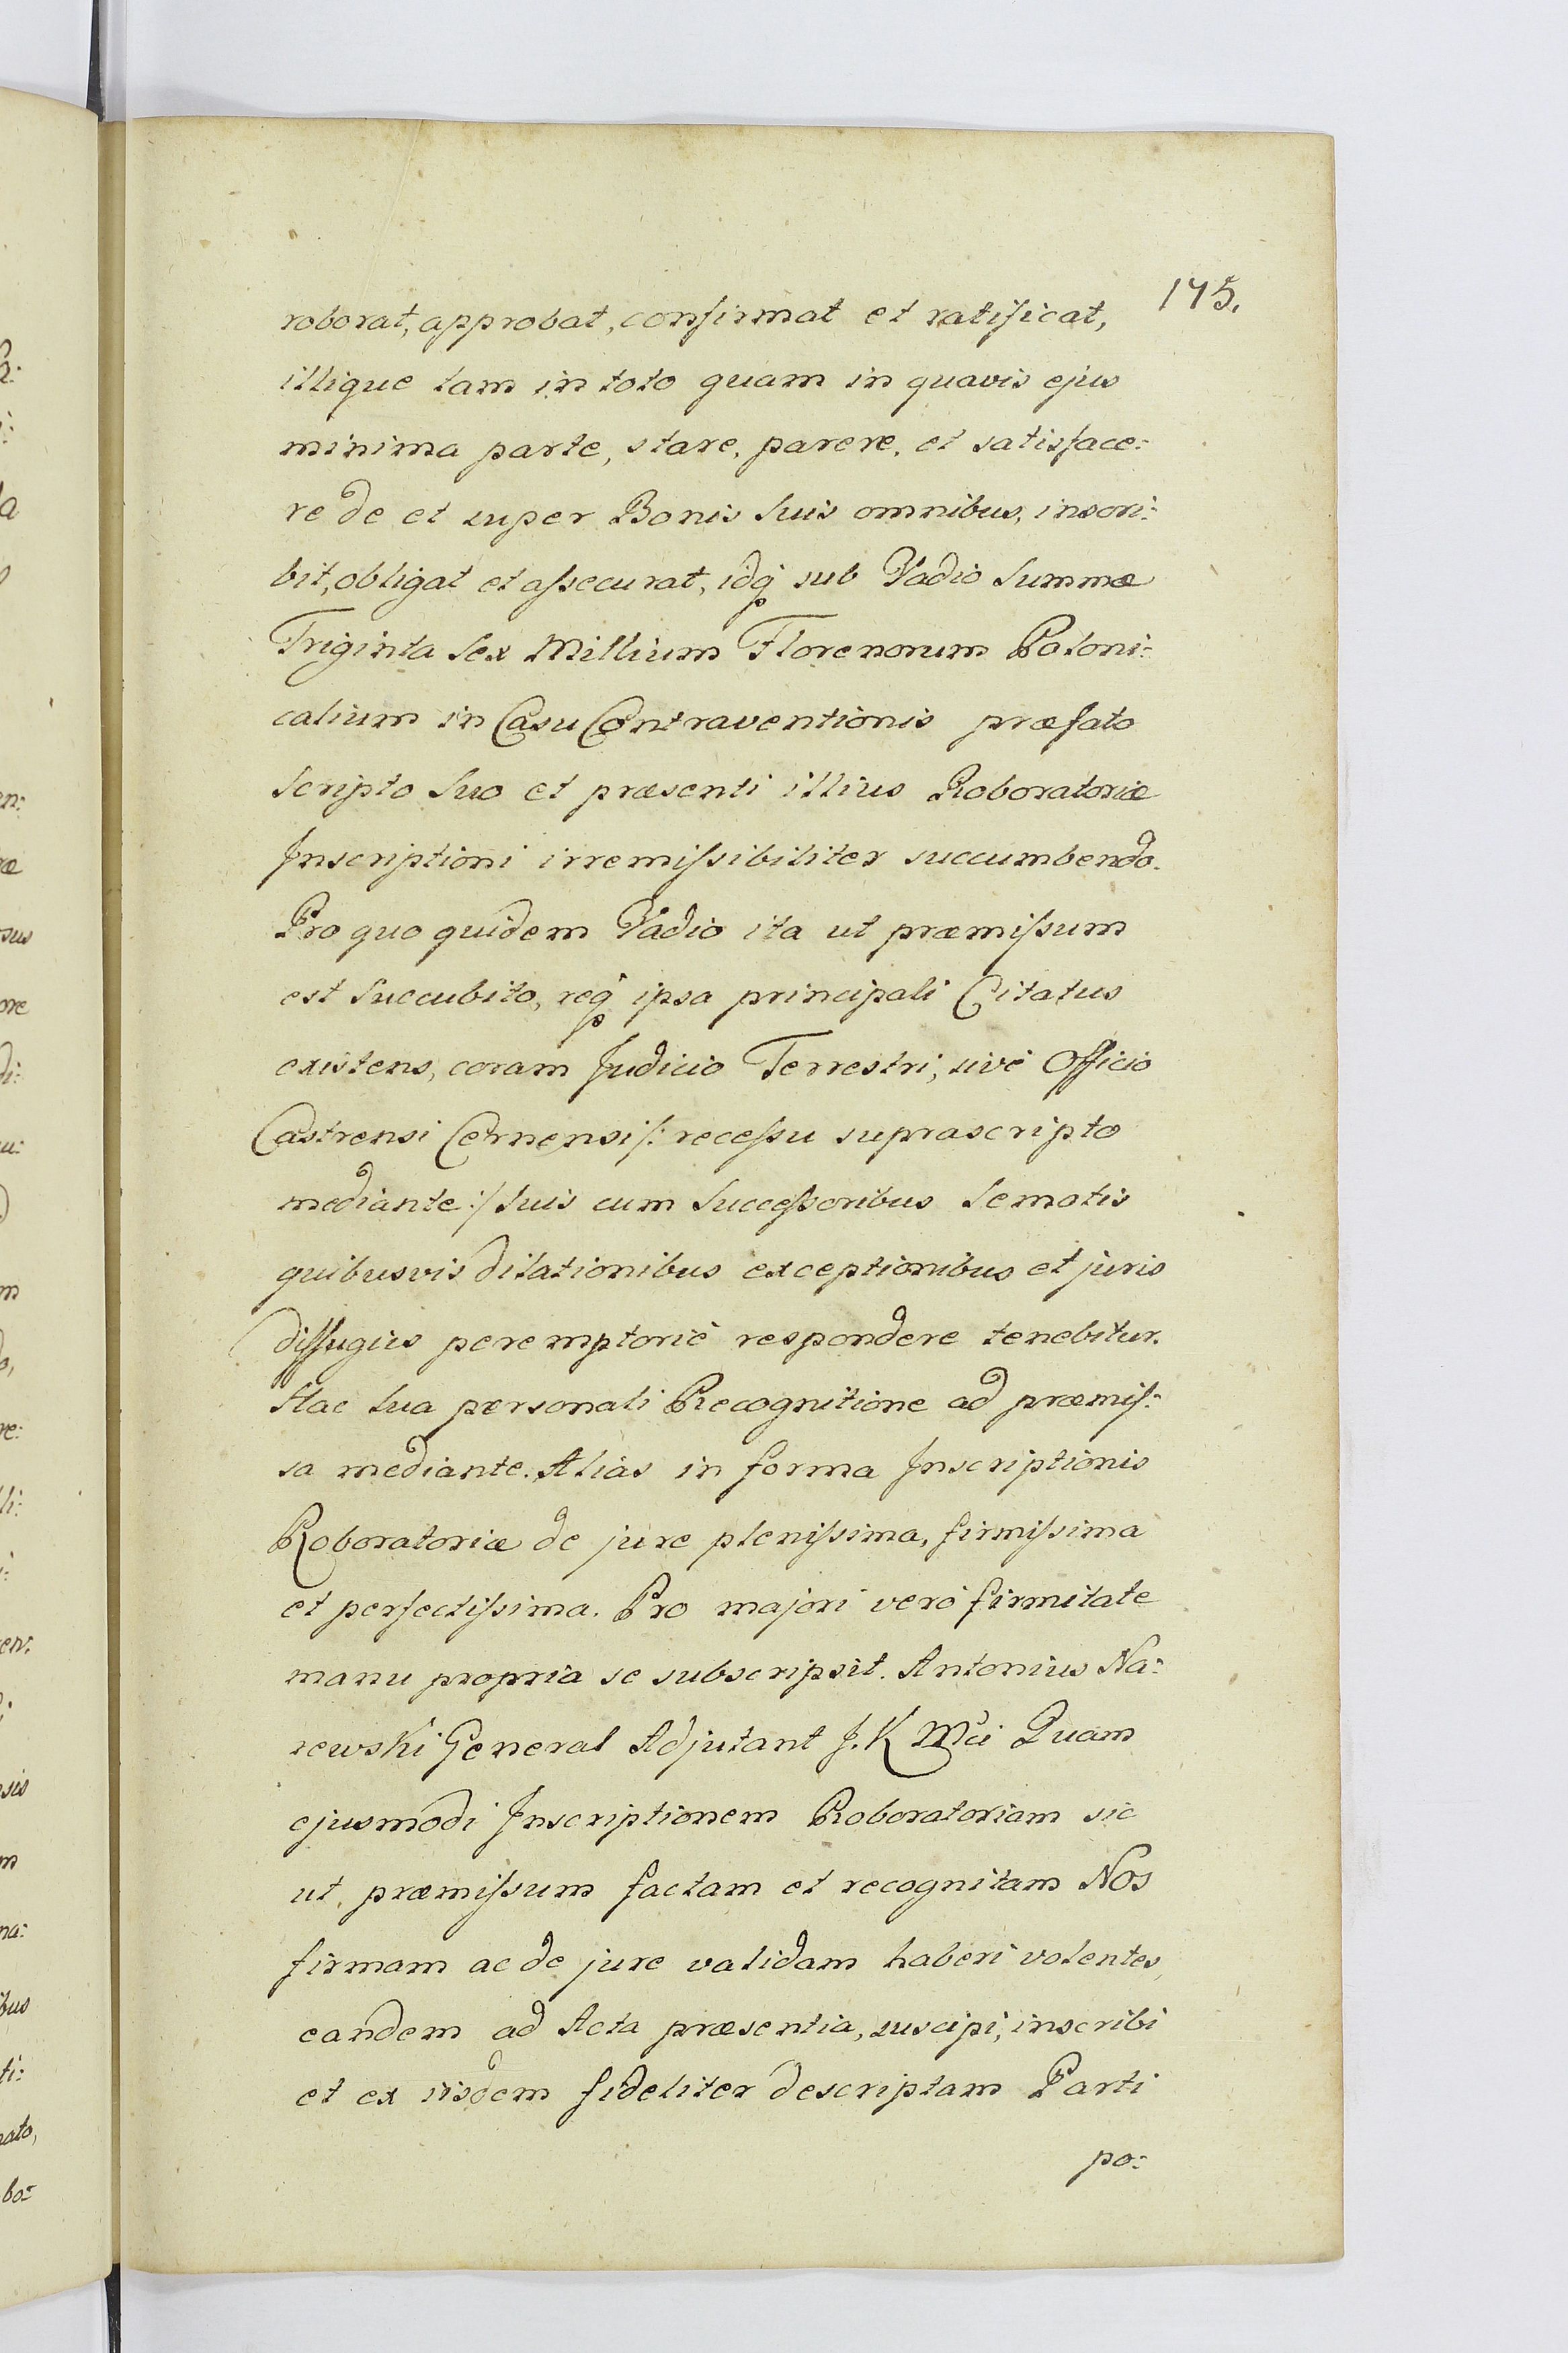 175.
roborat, approbat, confirmat et ratificat,
illique tam in toto quam in quavis ejus
minima parte, stare, parere, et satisface:
re de et super Bonis Suis omnibus, inscri:
bit, obligat et aſsecurat, idq; sub Vadio Summæ
Triginta Sex Millium Florenorum Poloni:
calium in Casu Contraventionis præfato
Scripto Suo et præsenti illius Roboratoriæ
Inscriptioni irremiſsibiliter succumbendo.
Pro quo quidem Vadio ita ut præmiſsum
est Succubito, req; ipsa principali Citatus
existens, coram Judicio Terrestri, sivè Officio
Castrensi Cernensi /: receſsu suprascripto
mediante :/ Suis cum Succeſsoribus Semotis
quibusvis dilationibus exceptionibus et juris
diffugiis peremptoriè respondere tenebitur.
Hac Sua personali Recognitione ad præmiſ:
sa mediante. Alias in forma Inscriptionis
Roboratoriæ de jure pleniſsima, firmiſsima
et perfectiſsima. Pro majori verò firmitate
manu propria se subscripsit. Antonius Na:
rewski General Adjutant J. K Mci Quam
ejusmodi Inscriptionem Roboratoriam sic
ut præmiſsum factam et recognitam Nos
firmam ac de jure validam haberi volentes,
eandem ad Acta præsentia, suscipi, inscribi
et ex iisdem fideliter descriptam Parti
po: